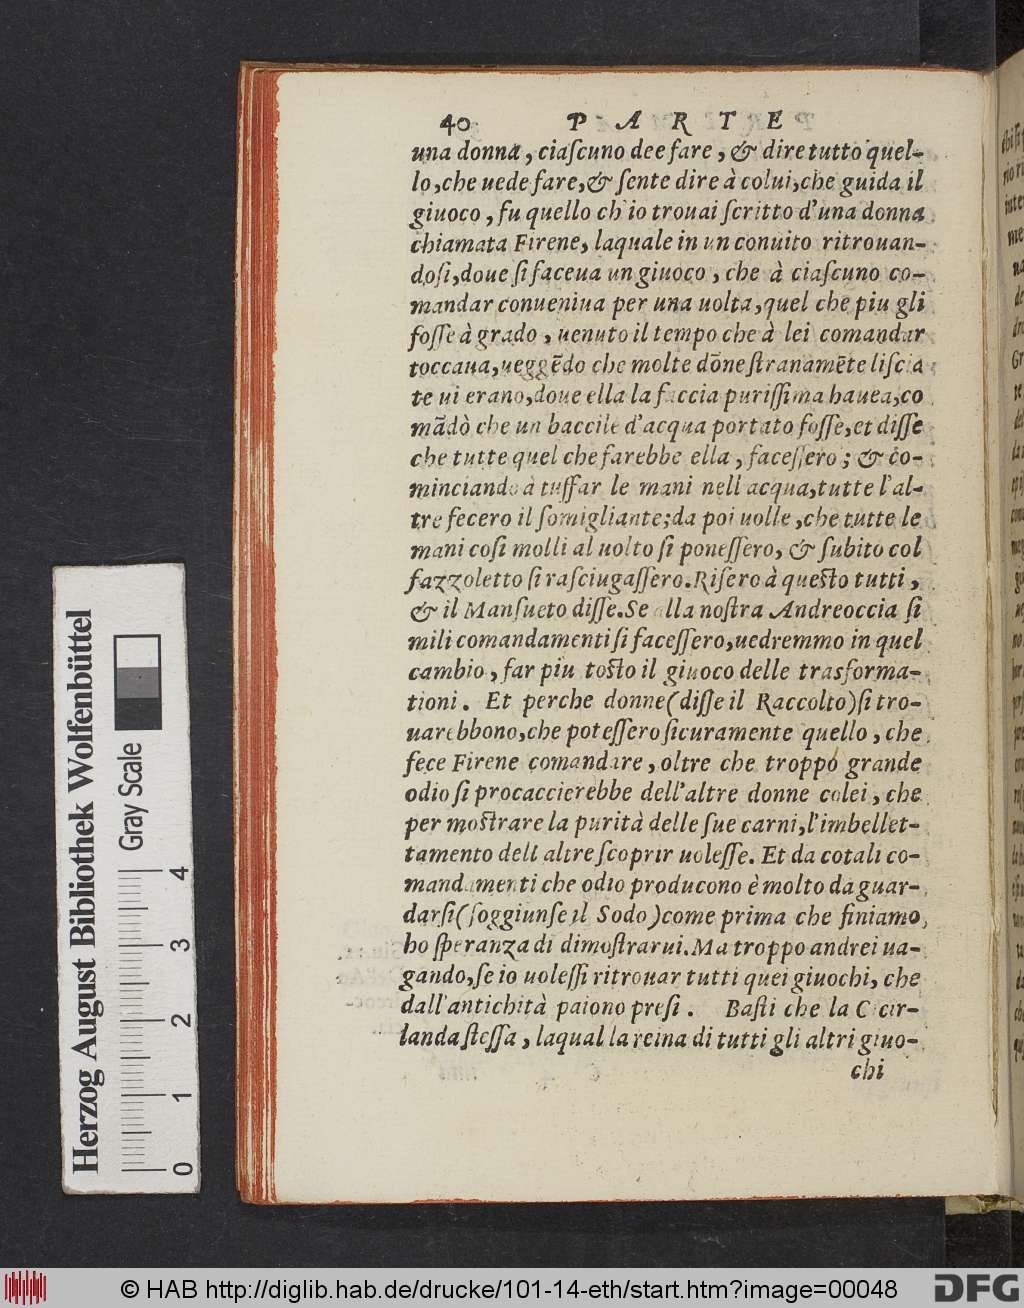 40 PARTE
una donna, ciaſcuno dee fare, & dire tutto quel-
lo, che uede fare, & ſente dire à colui, che guida il
giuoco, fu quello ch'io trouai ſcritto d'una donna
chiamata Firene, laquale in un conuito ritrouan-
doſi, doue ſi faceua un giuoco, che à ciaſcuno co-
mandar conueniua per una uolta, quel che piu gli
foſſe à grado, uenuto il tempo che à lei comandar
toccaua, ueggẽdo che molte dõne ſtranamẽte liſcia
te ui erano, doue ella la faccia puriſſima hauea, co
mãdò che un baccile d'acqua portato foſſe, et diſſe
che tutte quel che farebbe ella, faceſſero; & co-
minciando à tuffar le mani nell acqua, tutte l'al-
tre fecero il ſomigliante; da poi uolle, che tutte le
mani coſi molli al uolto ſi poneſſero, & ſubito col
fazzoletto ſi raſciugaſſero. Riſero à queſto tutti,
& il Manſueto diſſe. Se alla noſtra Andreoccia ſi
mili comandamenti ſi faceſſero, uedremmo in quel
cambio, far piu toſto il giuoco delle trasforma-
tioni. Et perche donne (diſſe il Raccolto) ſi tro-
uarebbono, che poteſſero ſicuramente quello, che
fece Firene comandare, oltre che troppo grande
odio ſi procaccierebbe dell'altre donne colei, che
per moſtrare la purità delle ſue carni, l'imbellet-
tamento dell altre ſcoprir uoleſſe. Et da cotali co-
mandamenti che odio producono è molto da guar-
darſi (ſoggiunſe il Sodo) come prima che finiamo
ho ſperanza di dimoſtrarui. Ma troppo andrei ua-
gando, ſe io uoleſſi ritrouar tutti quei giuochi, che
dall'antichità paiono preſi. Baſti che la Ghir-
landa ſteſſa, laqual la reina di tutti gli altri giuo-
chi
Herzog August Bibliothek Wolfenbüttel
Gray Scale
0 1 2 3 4
© HAB http://diglib.hab.de/drucke/101-14-eth/start.htm?image=00048
DFG